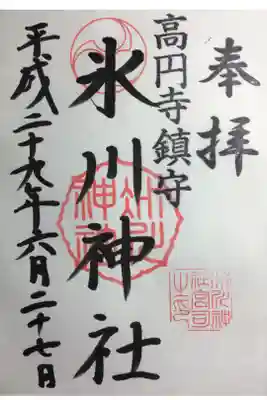 奉拝
高円寺鎮守
氷川神社
平成二十九年六月二十七日